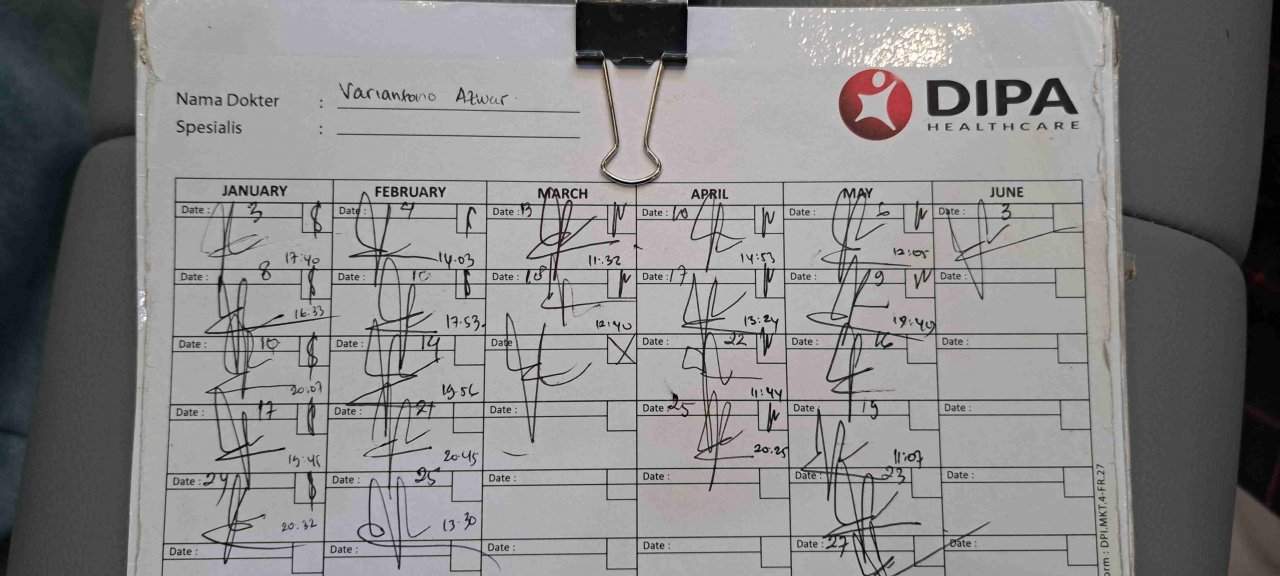 Nama Dokter : Variantono Azwar
Spesialis :
DIPA
HEALTHCARE
JANUARY FEBRUARY MARCH APRIL MAY JUNE
Date : 3 Date : 4 Date : 13 Date : 10 Date : 6 Date : 3
17:40 14.03 11:32 14:53 12:05
Date : 8 Date : 10 Date : 18 Date : 17 Date : 9 Date :
16.33 17.53 12:40 13:24
Date : 10 Date : 14 Date Date : 22 Date : 16 Date :
20.07 11:44
Date : 17 Date : 21 Date : Date : 25 Date : 19 Date :
19:45 20:45 20.25 11:07
Date : 24 Date : 25 Date : Date : Date : 23 Date :
20.32 13.30
Date : Date : Date : Date : Date : 27 Date :
orm : DPI.MKT.4-FR.27